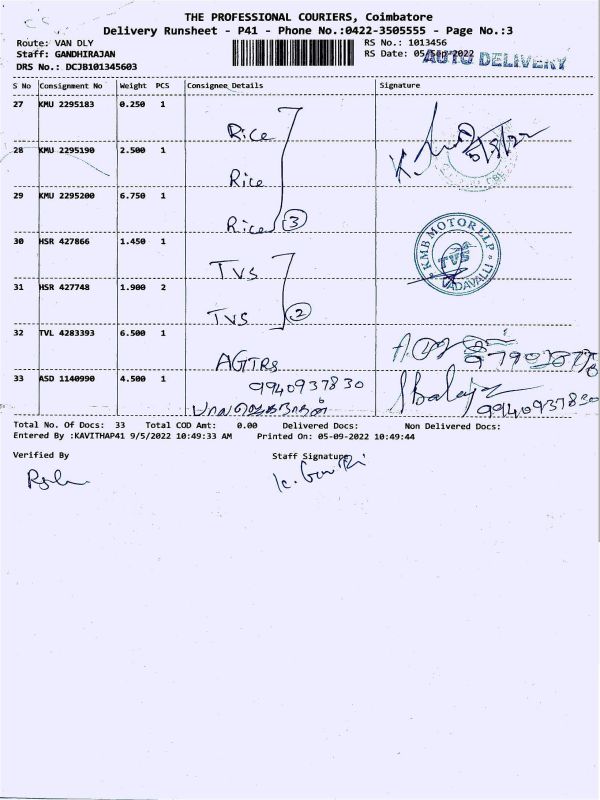 THE PROFESSIONAL COURIERS, Coimbatore
Delivery Runsheet - P41 - Phone No.:0422-3505555 - Page No.:3
Route: VAN DLY RS No.: 1013456
Staff: GANDHIRAJAN RS Date: 05/Sep/2022
AUTO DELIVERY
DRS No.: DCJB101345603
S No Consignment No Weight PCS Consignee Details Signature
27 KMU 2295183 0.250 1
Rice
28 KMU 2295190 2.500 1
Rice
29 KMU 2295200 6.750 1
Rice 3
30 HSR 427866 1.450 1
TVS
KMB MOTOR LLP
TVS
VADAVALLI
31 HSR 427748 1.900 2
TVS 2
32 TVL 4283393 6.500 1
AGTRS
33 ASD 1140990 4.500 1
9940937830 SBalaji
9940937830
Total No. Of Docs: 33 Total COD Amt: 0.00 Delivered Docs: Non Delivered Docs:
Entered By :KAVITHAP41 9/5/2022 10:49:33 AM Printed On: 05-09-2022 10:49:44
Verified By Staff Signature